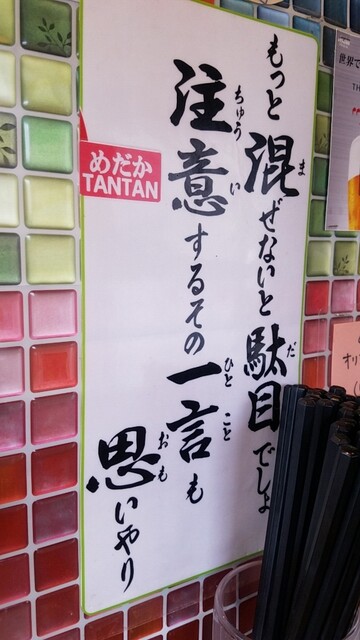 もっと混ぜないと駄目でしょ
ま
だめ
注意するその一言も
ちゅうい
ひとこと
思いやり
おも
めだか
TANTAN
世界で
TH
オリ